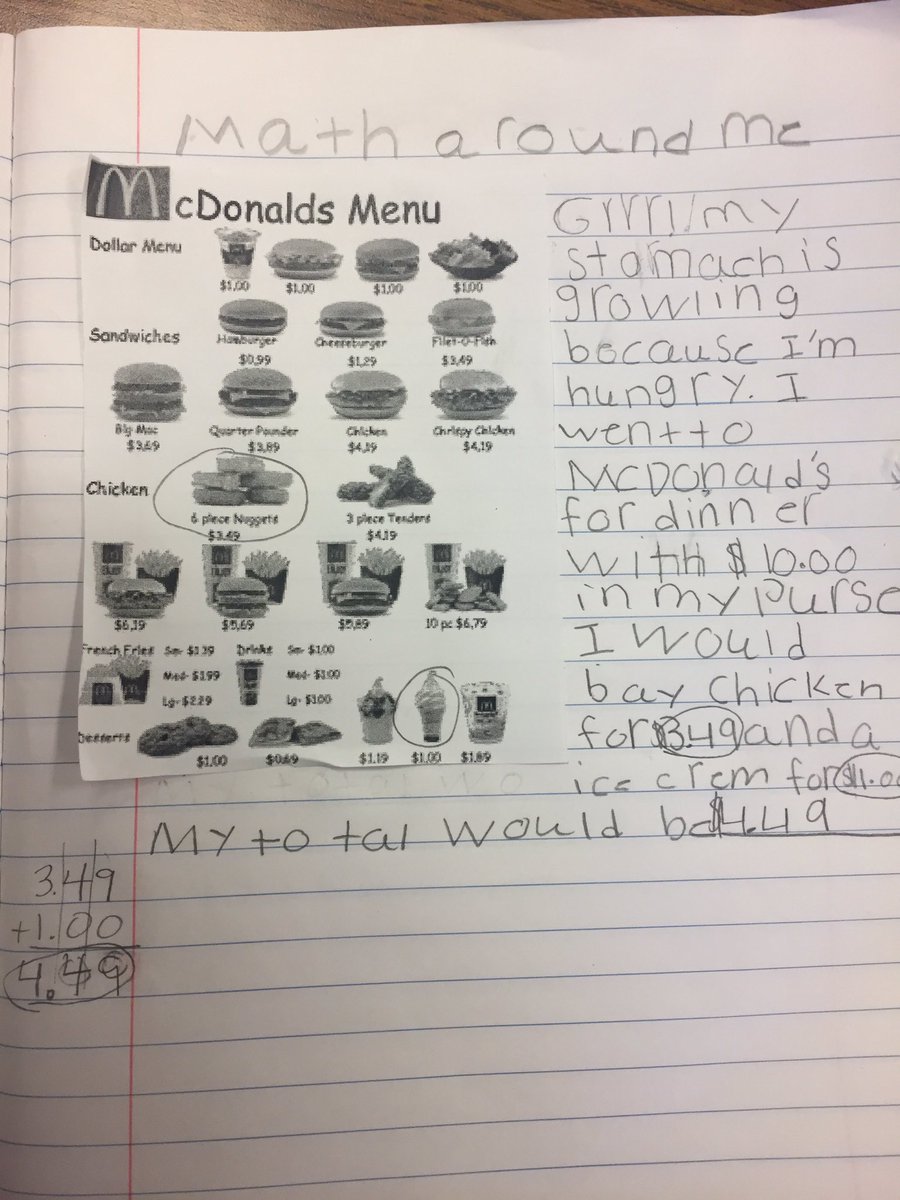 Math around me
McDonalds Menu
Dollar Menu
$1.00 $1.00 $1.00 $1.00
Sandwiches
Hamburger Cheeseburger Filet-O-Fish
$0.99 $1.29 $3.49
Big Mac Quarter Pounder Chicken Chrispy Chicken
$3.69 $3.89 $4.19 $4.19
Chicken
6 piece Nuggets 3 piece Tenders
$3.49 $4.19
$6.19 $5.69 $5.89 10 pc $6.79
French Fries Sm- $1.39 Drinks Sm- $1.00
Med- $1.99 Med- $1.00
Lg- $2.29 Lg- $1.00
Desserts
$1.00 $0.69 $1.19 $1.00 $1.89
Grrrr! my
stomach is
growling
because I'm
hungry. I
went to
McDonald's
for dinner
with $10.00
in my purse
I would
bay chicken
for $3.49 and a
ice crem for $1.00
My total would be $4.49
3.49
+1.00
4.49